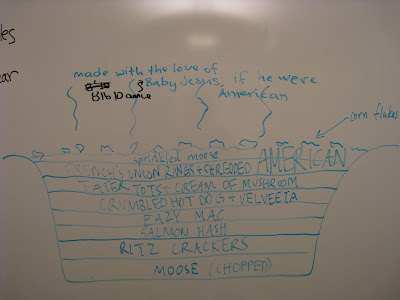 made with the love of
Baby Jesus, if he were
American
corn flakes
sprinkled moose
FRENCH'S UNION RINGS + SHREDDED AMERICAN
TATER TOTS + CREAM OF MUSHROOM
CRUMBLED HOT DOG + VELVEETA
EAZY MAC
SALMON HASH
RITZ CRACKERS
MOOSE (CHOPPED)